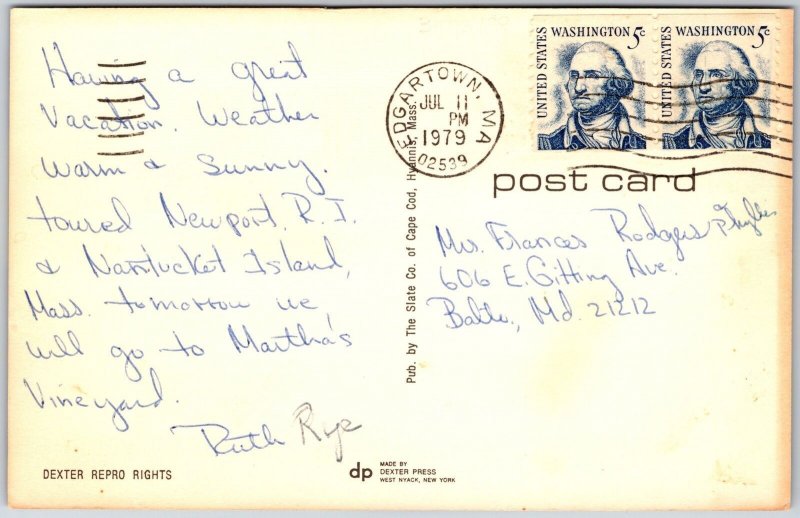 Having a great
Vacation. Weather
warm & sunny.
toured Newport, R.I.
& Nantucket Island,
Mass. tomorrow we
will go to Martha's
Vineyard.
Ruth Rye
DEXTER REPRO RIGHTS
dp
MADE BY
DEXTER PRESS
WEST NYACK, NEW YORK
Pub. by The Slate Co. of Cape Cod, Hyannis, Mass.
EDGARTOWN, MA
JUL 11
PM
1979
02539
UNITED STATES
WASHINGTON 5c
UNITED STATES
WASHINGTON 5c
post card
Mrs. Frances Rodgers or Phyllis
606 E. Gitting Ave.
Balto., Md. 21212